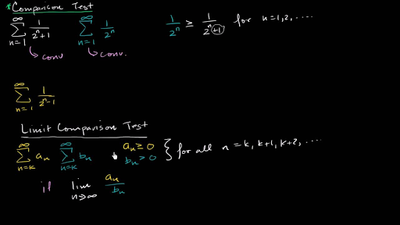 Comparison Test
∞ ∑ n=1 1/(2^n+1) ∞ ∑ n=1 1/2^n 1/2^n ≥ 1/(2^n+1) for n=1,2,....
conv conv.
∞ ∑ n=1 1/(2^n-1)
Limit Comparison Test
∞ ∑ n=k a_n ∞ ∑ n=k b_n a_n ≥ 0 b_n > 0 } for all n = k, k+1, k+2, ....
if lim n→∞ a_n/b_n